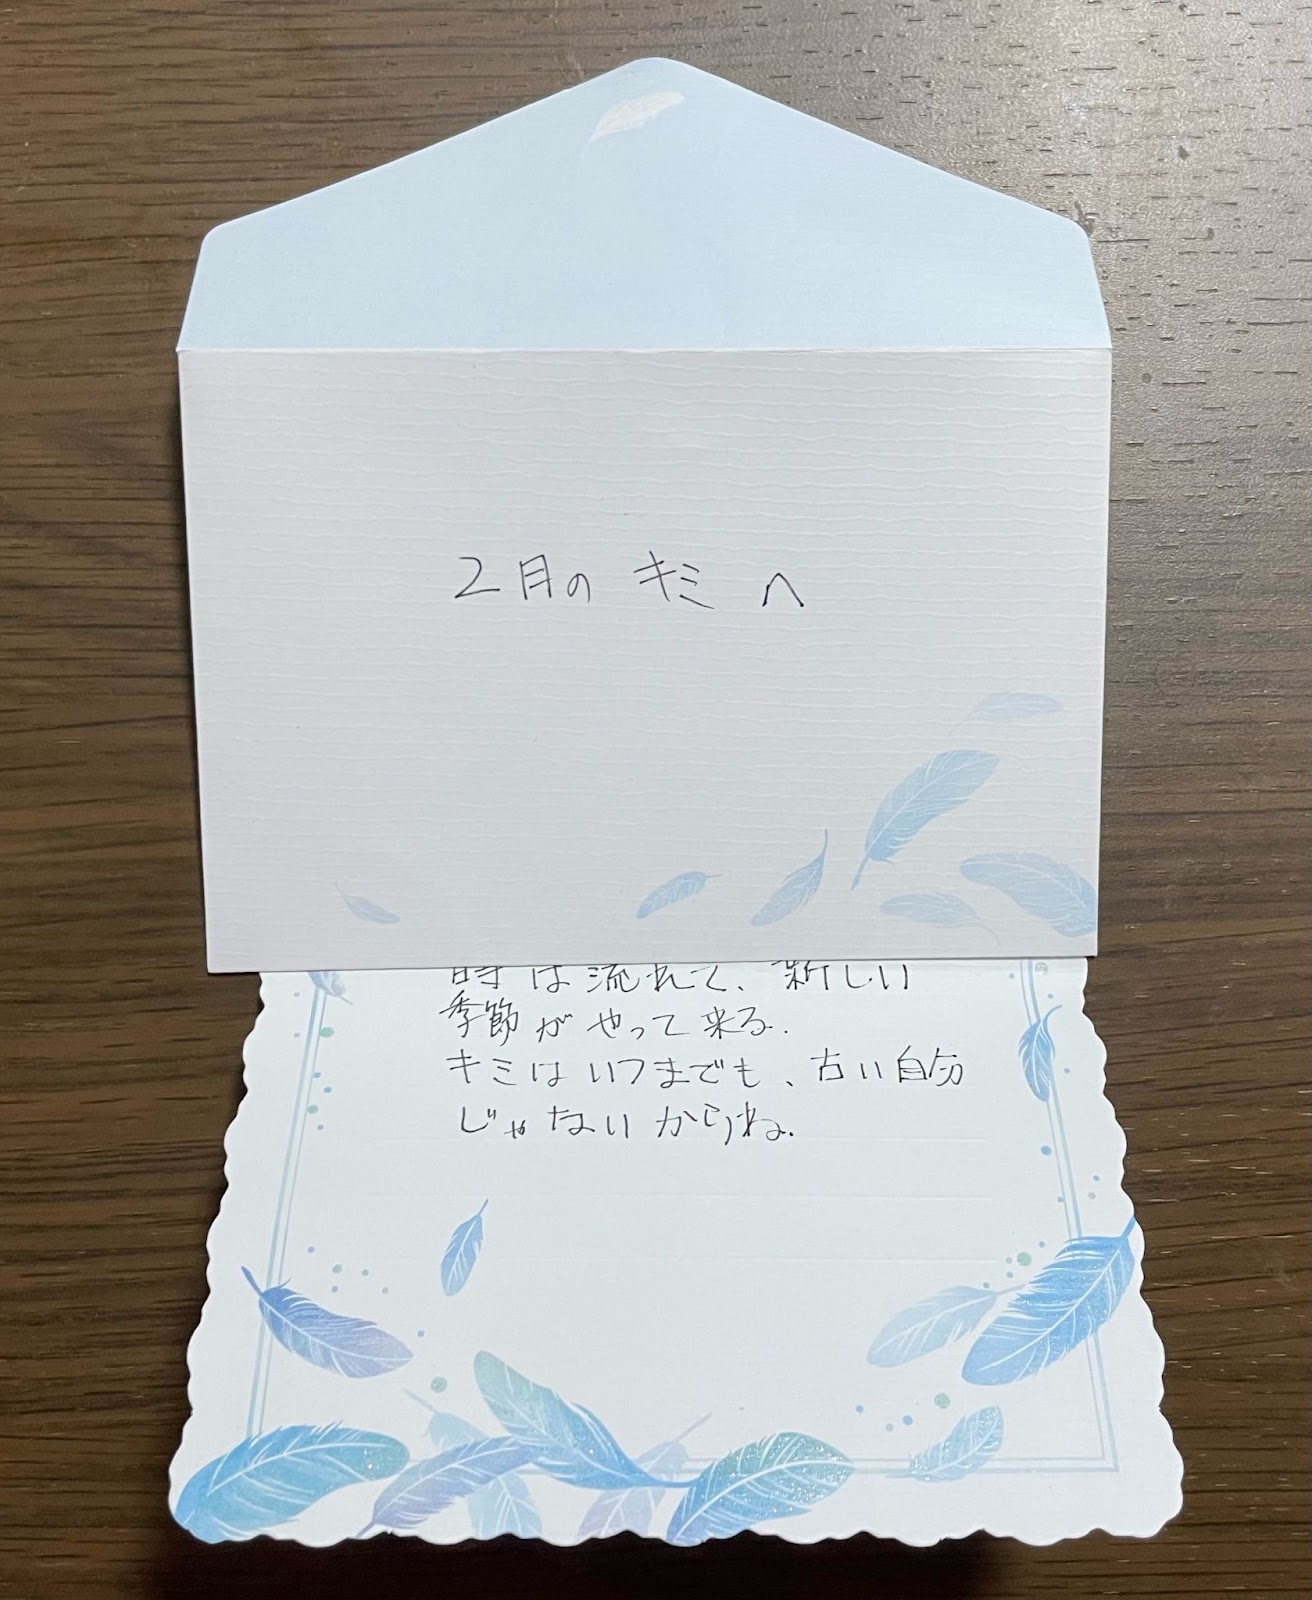 2月の キミ へ
時は流れて、新しい
季節がやって来る.
キミはいつまでも、古い自分
じゃないからね.